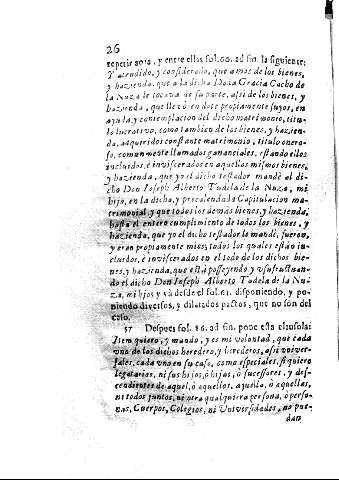 26
repetir aora, y entre ellas fol. 60. ad fin. la siguiente:
Y atendido, y considerado, que amas de los bienes,
y hazienda, que a la dicha Doña Gracia Cacho de
la Nuza le tocava de su parte, assi de los bienes, y
hazienda, que llevò en dote propiamente suyos, en
ayuda, y contemplacion del dicho matrimonio, titu-
lo lucrativo, como tambien de los bienes, y hazien-
da, adquiridos constante matrimonio, titulo onero-
so, comunmente llamados gananciales, estando ellos
incluidos, è inviscerados en aquellos mismos bienes,
y hazienda, que yo el dicho testador mandè al di-
cho Don Joseph Alberto Tudila de la Nuza, mi
hijo, en la dicha, y precalendada Capitulacion ma-
trimonial, y que todos los demàs bienes, y hazienda,
hasta el entero cumplimiento de todos los bienes, y
hazienda, que yo el dicho testador le mandè, fueron,
y eran propiamente mios, todos los quales estàn in-
cluidos, è inviscerados en el todo de los dichos bie-
nes, y hazienda, que està posseyendo, y usufructuan-
do el dicho Don Joseph Alberto Tudela de la Nu-
za, mi hijo: y và desde el fol. 61. disponiendo, y po-
niendo diversos, y dilatados pactos, que no son del
caso.
57 Despues fol. 86. ad fin. pone esta clausula:
Item quiero, y mando, y es mi voluntad, que cada
uno de los dichos heredero, y herederos, assi univer-
sales, cada uno en su caso, como especiales, si quiere
legatarios, ni sus hijos, ò hijas, ò sucessores, y des-
cendientes de aquel, ò aquellos, aquella, ò aquellas,
ni todos juntos, ni otra qualquiera persona, ò perso-
nas, Cuerpos, Colegios, ni Universidades, no pue-
dan